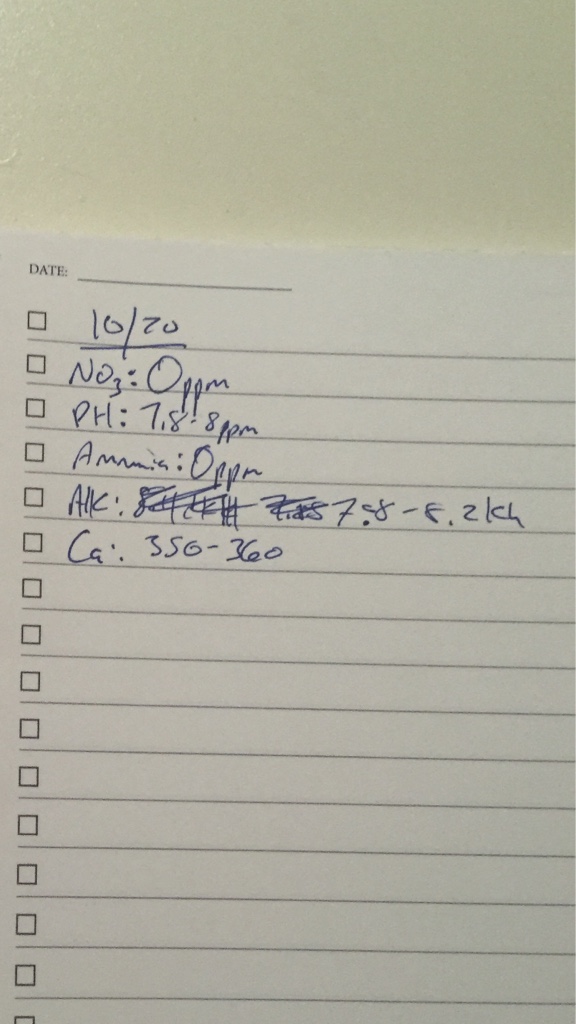 DATE:
10/20
NO3: 0ppm
PH: 7.8-8ppm
Ammonia: 0ppm
Alk: 7.8-8.2 kh
Ca: 350-360